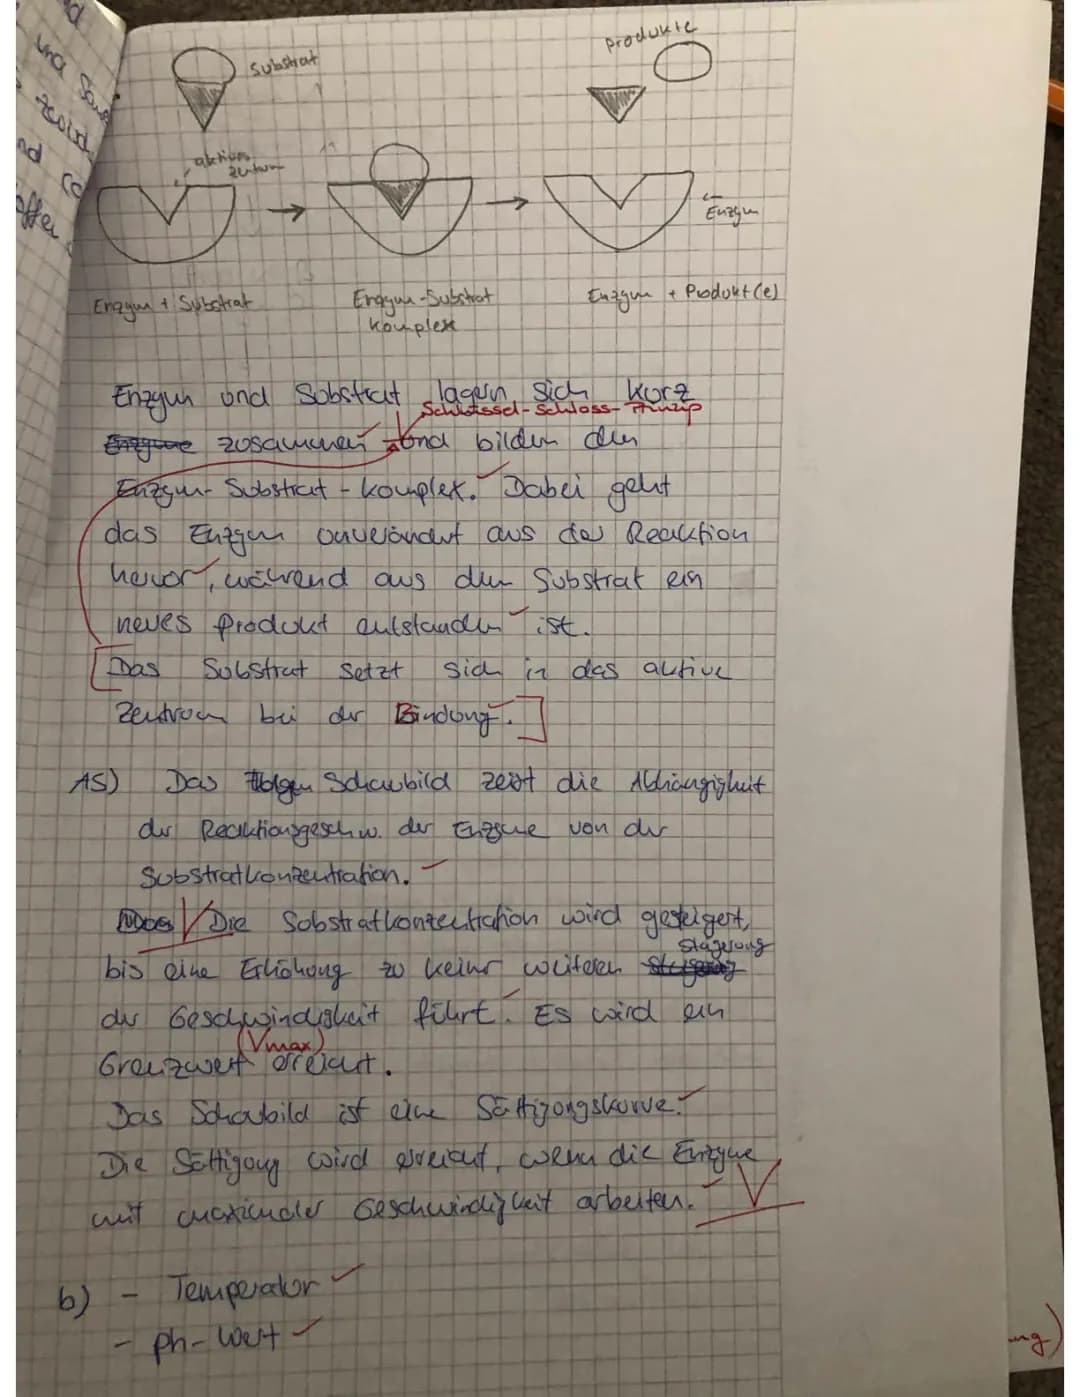 Produkte
Substrat
aktives
Zentrum
Enzym
Enzym + Substrat
Enzym-Substrat
komplex
Enzym + Produkt(e)
Enzym und Substrat lagern sich kurz
Schlüssel-Schloss-Prinzip
Enzyme zusammen und bilden den
Enzym-Substrat-komplex. Dabei geht
das Enzym unverändert aus der Reaktion
hervor, während aus dem Substrat ein
neues Produkt entstanden ist.
[Das Substrat setzt sich in das aktive
Zentrum bei der Bindung.]
A5) Das Schaubild zeigt die Abhängigkeit
der Reaktionsgeschw. der Enzyme von der
Substratkonzentration.
Die Substratkonzentration wird gesteigert,
Steigerung
bis eine Erhöhung zu keiner weiteren
der Geschwindigkeit führt. Es wird ein
(Vmax)
Grenzwert erreicht.
Das Schaubild ist eine Sättigungskurve.
Die Sättigung wird erreicht, wenn die Enzyme
mit maximaler Geschwindigkeit arbeiten.
b) - Temperatur
- ph-Wert
und